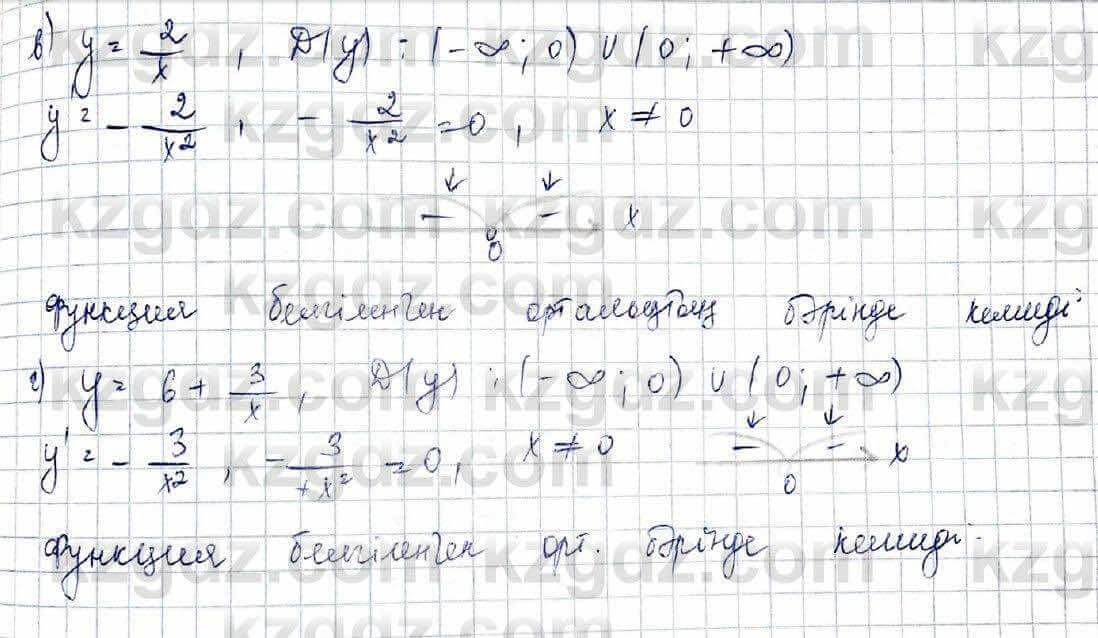 в) y = 2/x , D(y) : (-∞; 0) ∪ (0; +∞)
y' = - 2/x² , - 2/x² = 0 , x ≠ 0
↓ ↓
- - x
0
Функция белгіленген бәрінде кемиді.
г) y = 6 + 3/x , D(y) : (-∞; 0) ∪ (0; +∞)
y' = - 3/x² , - 3/+x² = 0 , x ≠ 0
↓ ↓
- - x
0
Функция белгіленген орт. бәрінде кемиді.
kzgdz.com